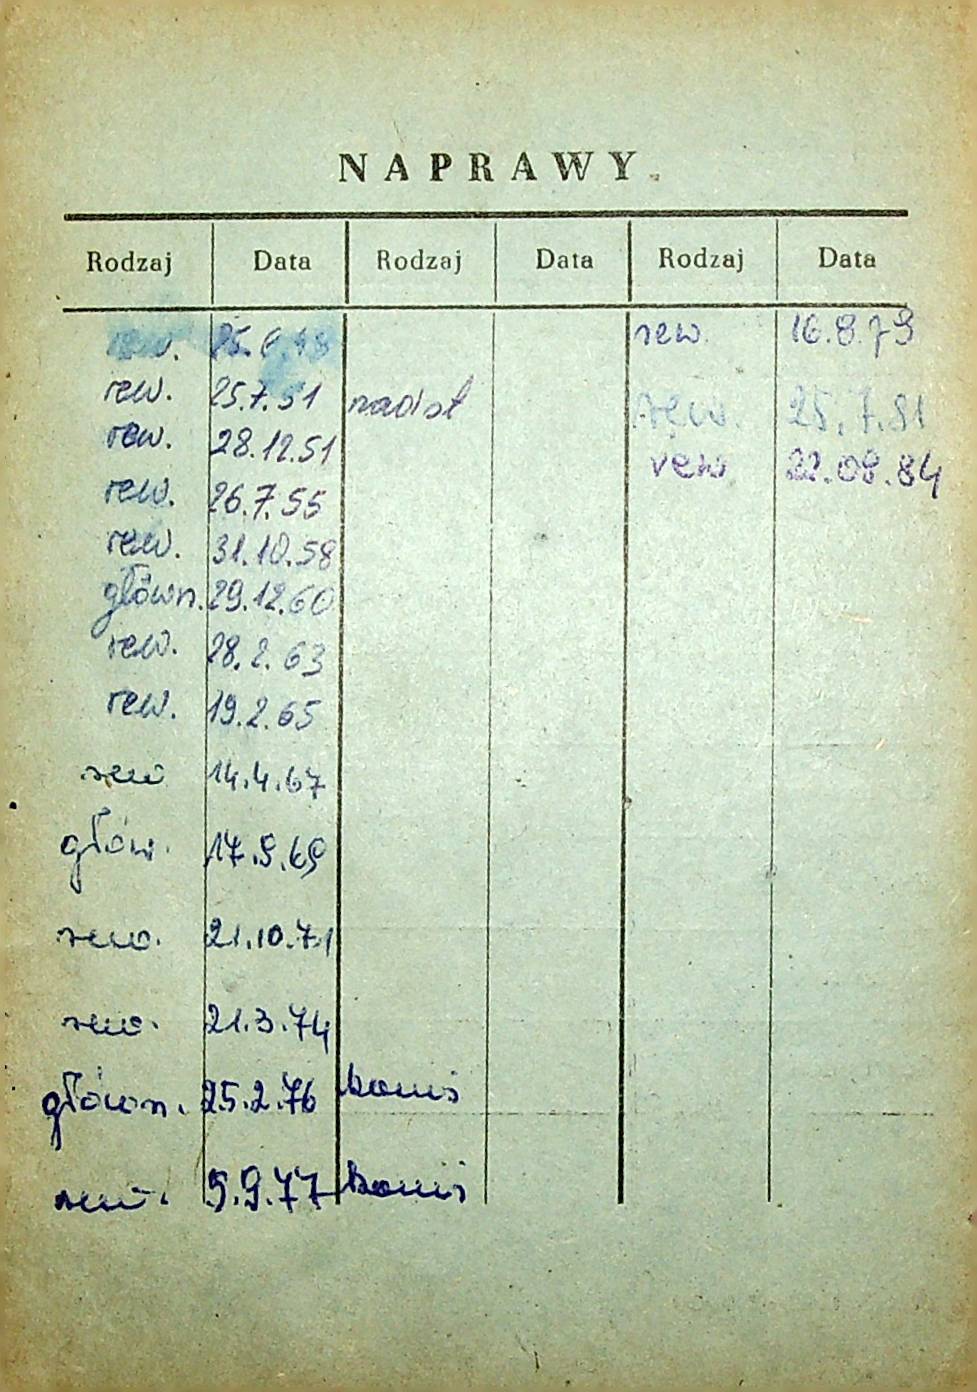 NAPRAWY
Rodzaj Data Rodzaj Data Rodzaj Data
rew. 25.6.48 rew. 16.8.79
rew. 25.7.51 nadst rew. 25.7.81
rew. 28.12.51 rew 22.08.84
rew. 26.7.55
rew. 31.10.58
główn. 29.12.60
rew. 28.2.63
rew. 19.2.65
rew 14.4.67
głów. 17.9.69
rew. 21.10.71
rew. 21.3.74
główn. 25.2.76
rew. 9.9.77